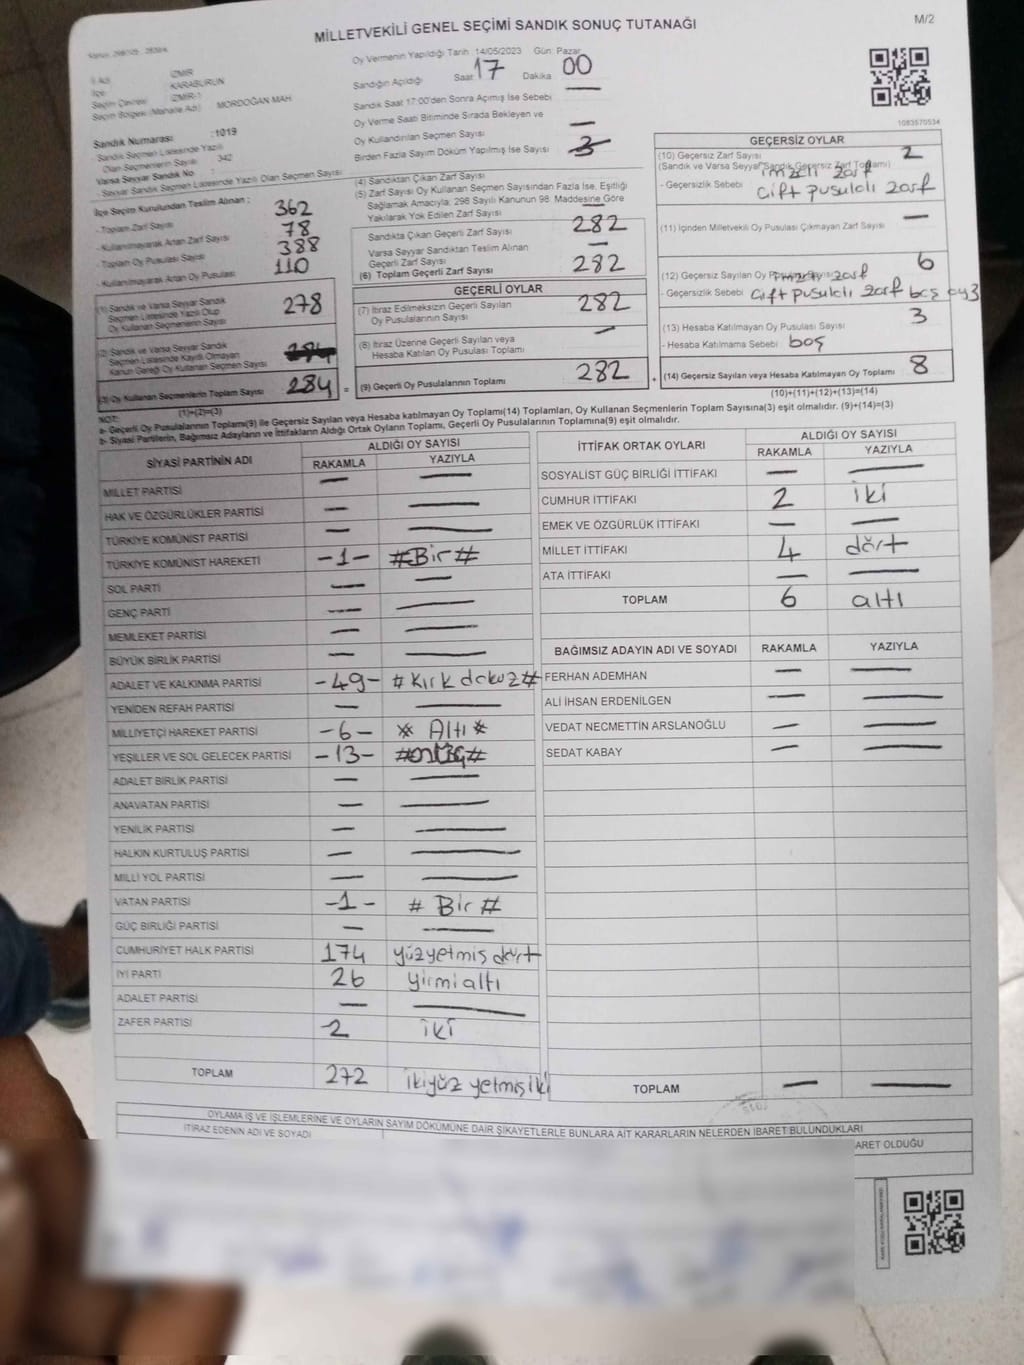 MİLLETVEKİLİ GENEL SEÇİMİ SANDIK SONUÇ TUTANAĞI
M/2
Oy Vermenin Yapıldığı Tarih :14/05/2023 Gün: Pazar
İl Adı : İZMİR
İlçe : KARABURUN
Seçim Çevresi : İZMİR-1
Seçim Bölgesi (Mahalle Adı) : MORDOĞAN MAH
Sandığın Açıldığı Saat 17 Dakika 00
Sandık Saat 17:00'den Sonra Açımış İse Sebebi —
Oy Verme Saati Bitiminde Sırada Bekleyen ve
Oy Kullandırılan Seçmen Sayısı —
Birden Fazla Sayım Döküm Yapılmış İse Sayısı
1083570534
Sandık Numarası :1019
- Sandık Seçmen Listesinde Yazılı
Olan Seçmenlerin Sayısı : 342
Varsa Seyyar Sandık No :
- Seyyar Sandık Seçmen Listesinde Yazılı Olan Seçmen Sayısı :
İlçe Seçim Kurulundan Teslim Alınan ;
- Toplam Zarf Sayısı 362
- Kullanılmayarak Artan Zarf Sayısı 78
- Toplam Oy Pusulası Sayısı 388
- Kullanılmayarak Artan Oy Pusulası 110
(1) Sandık ve Varsa Seyyar Sandık
Seçmen Listesinde Yazılı Olup
Oy Kullanan Seçmenlerin Sayısı 278
(2) Sandık ve Varsa Seyyar Sandık
Seçmen Listesinde Kayıtlı Olmayan
Kanun Gereği Oy Kullanan Seçmen Sayısı
(3) Oy Kullanan Seçmenlerin Toplam Sayısı 284 =
(1)+(2)=(3)
(4) Sandıktan Çıkan Zarf Sayısı
(5) Zarf Sayısı Oy Kullanan Seçmen Sayısından Fazla İse, Eşitliği
Sağlamak Amacıyla; 298 Sayılı Kanunun 98. Maddesine Göre
Yakılarak Yok Edilen Zarf Sayısı —
Sandıkta Çıkan Geçerli Zarf Sayısı 282
Varsa Seyyar Sandıktan Teslim Alınan
Geçerli Zarf Sayısı —
(6) Toplam Geçerli Zarf Sayısı 282
GEÇERLİ OYLAR
(7) İtiraz Edilmeksizin Geçerli Sayılan
Oy Pusulalarının Sayısı 282
(8) İtiraz Üzerine Geçerli Sayılan veya
Hesaba Katılan Oy Pusulası Toplamı —
(9) Geçerli Oy Pusulalarının Toplamı 282 +
GEÇERSİZ OYLAR
(10) Geçersiz Zarf Sayısı 2
(Sandık ve Varsa Seyyar Sandık Geçersiz Zarf Toplamı)
- Geçersizlik Sebebi imzeli zarf
Çift pusulalı zarf
(11) İçinden Milletvekili Oy Pusulası Çıkmayan Zarf Sayısı —
(12) Geçersiz Sayılan Oy Pusulası Sayısı 6
- Geçersizlik Sebebi Çift pusulalı zarf boş oy3
(13) Hesaba Katılmayan Oy Pusulası Sayısı 3
- Hesaba Katılmama Sebebi boş
(14) Geçersiz Sayılan veya Hesaba Katılmayan Oy Toplamı 8
(10)+(11)+(12)+(13)=(14)
NOT:
a- Geçerli Oy Pusulalarının Toplamı(9) ile Geçersiz Sayılan veya Hesaba katılmayan Oy Toplamı(14) Toplamları, Oy Kullanan Seçmenlerin Toplam Sayısına(3) eşit olmalıdır. (9)+(14)=(3)
b- Siyasi Partilerin, Bağımsız Adayların ve İttifakların Aldığı Ortak Oyların Toplamı, Geçerli Oy Pusulalarının Toplamına(9) eşit olmalıdır.
SİYASİ PARTİNİN ADI ALDIĞI OY SAYISI
RAKAMLA YAZIYLA
MİLLET PARTİSİ — —
HAK VE ÖZGÜRLÜKLER PARTİSİ — —
TÜRKİYE KOMÜNİST PARTİSİ — —
TÜRKİYE KOMÜNİST HAREKETİ -1- #Bir#
SOL PARTİ — —
GENÇ PARTİ — —
MEMLEKET PARTİSİ — —
BÜYÜK BİRLİK PARTİSİ — —
ADALET VE KALKINMA PARTİSİ -49- #Kırk dokuz#
YENİDEN REFAH PARTİSİ — —
MİLLİYETÇİ HAREKET PARTİSİ -6- * Altı *
YEŞİLLER VE SOL GELECEK PARTİSİ -13- #onüç#
ADALET BİRLİK PARTİSİ — —
ANAVATAN PARTİSİ — —
YENİLİK PARTİSİ — —
HALKIN KURTULUŞ PARTİSİ — —
MİLLİ YOL PARTİSİ — —
VATAN PARTİSİ -1- # Bir #
GÜÇ BİRLİĞİ PARTİSİ — —
CUMHURİYET HALK PARTİSİ 174 yüzyetmiş dört
İYİ PARTİ 26 yirmialtı
ADALET PARTİSİ — —
ZAFER PARTİSİ 2 iki
TOPLAM 272 ikiyüz yetmişiki
İTTİFAK ORTAK OYLARI ALDIĞI OY SAYISI
RAKAMLA YAZIYLA
SOSYALİST GÜÇ BİRLİĞİ İTTİFAKI — —
CUMHUR İTTİFAKI 2 iki
EMEK VE ÖZGÜRLÜK İTTİFAKI — —
MİLLET İTTİFAKI 4 dört
ATA İTTİFAKI — —
TOPLAM 6 altı
BAĞIMSIZ ADAYIN ADI VE SOYADI RAKAMLA YAZIYLA
FERHAN ADEMHAN — —
ALİ İHSAN ERDENİLGEN — —
VEDAT NECMETTİN ARSLANOĞLU — —
SEDAT KABAY — —
TOPLAM — —
OYLAMA İŞ VE İŞLEMLERİNE VE OYLARIN SAYIM DÖKÜMÜNE DAİR ŞİKAYETLERLE BUNLARA AİT KARARLARIN NELERDEN İBARET BULUNDUKLARI
İTİRAZ EDENİN ADI VE SOYADI
ARET OLDUĞU